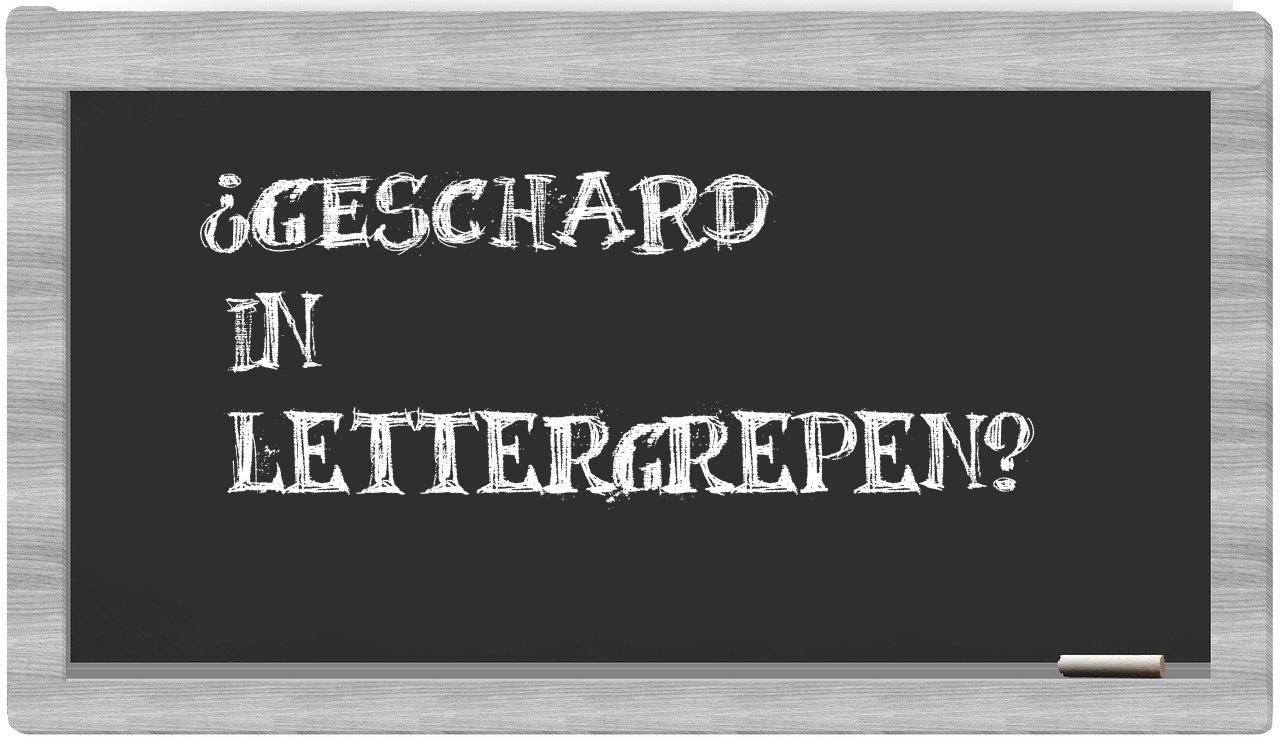 ¿GESCHARD
IN
LETTERGREPEN?